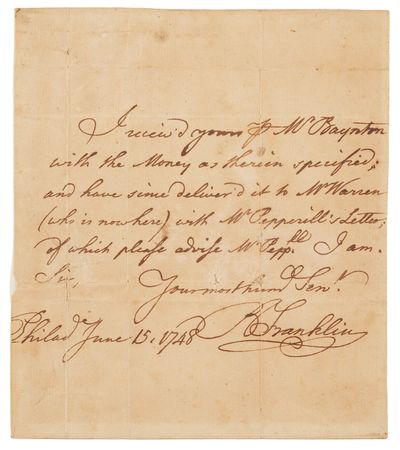 I receiv'd yours ⅌ Mr Baynton
with the Money as therein specified;
and have since deliver'd it to Mr Warren
(who is now here) with Mr Pepperill's Letter;
of which please advise Mr Pepp:ll I am.
Sir,
Your most humb Serv.t
Philad.a June 15, 1748 B Franklin